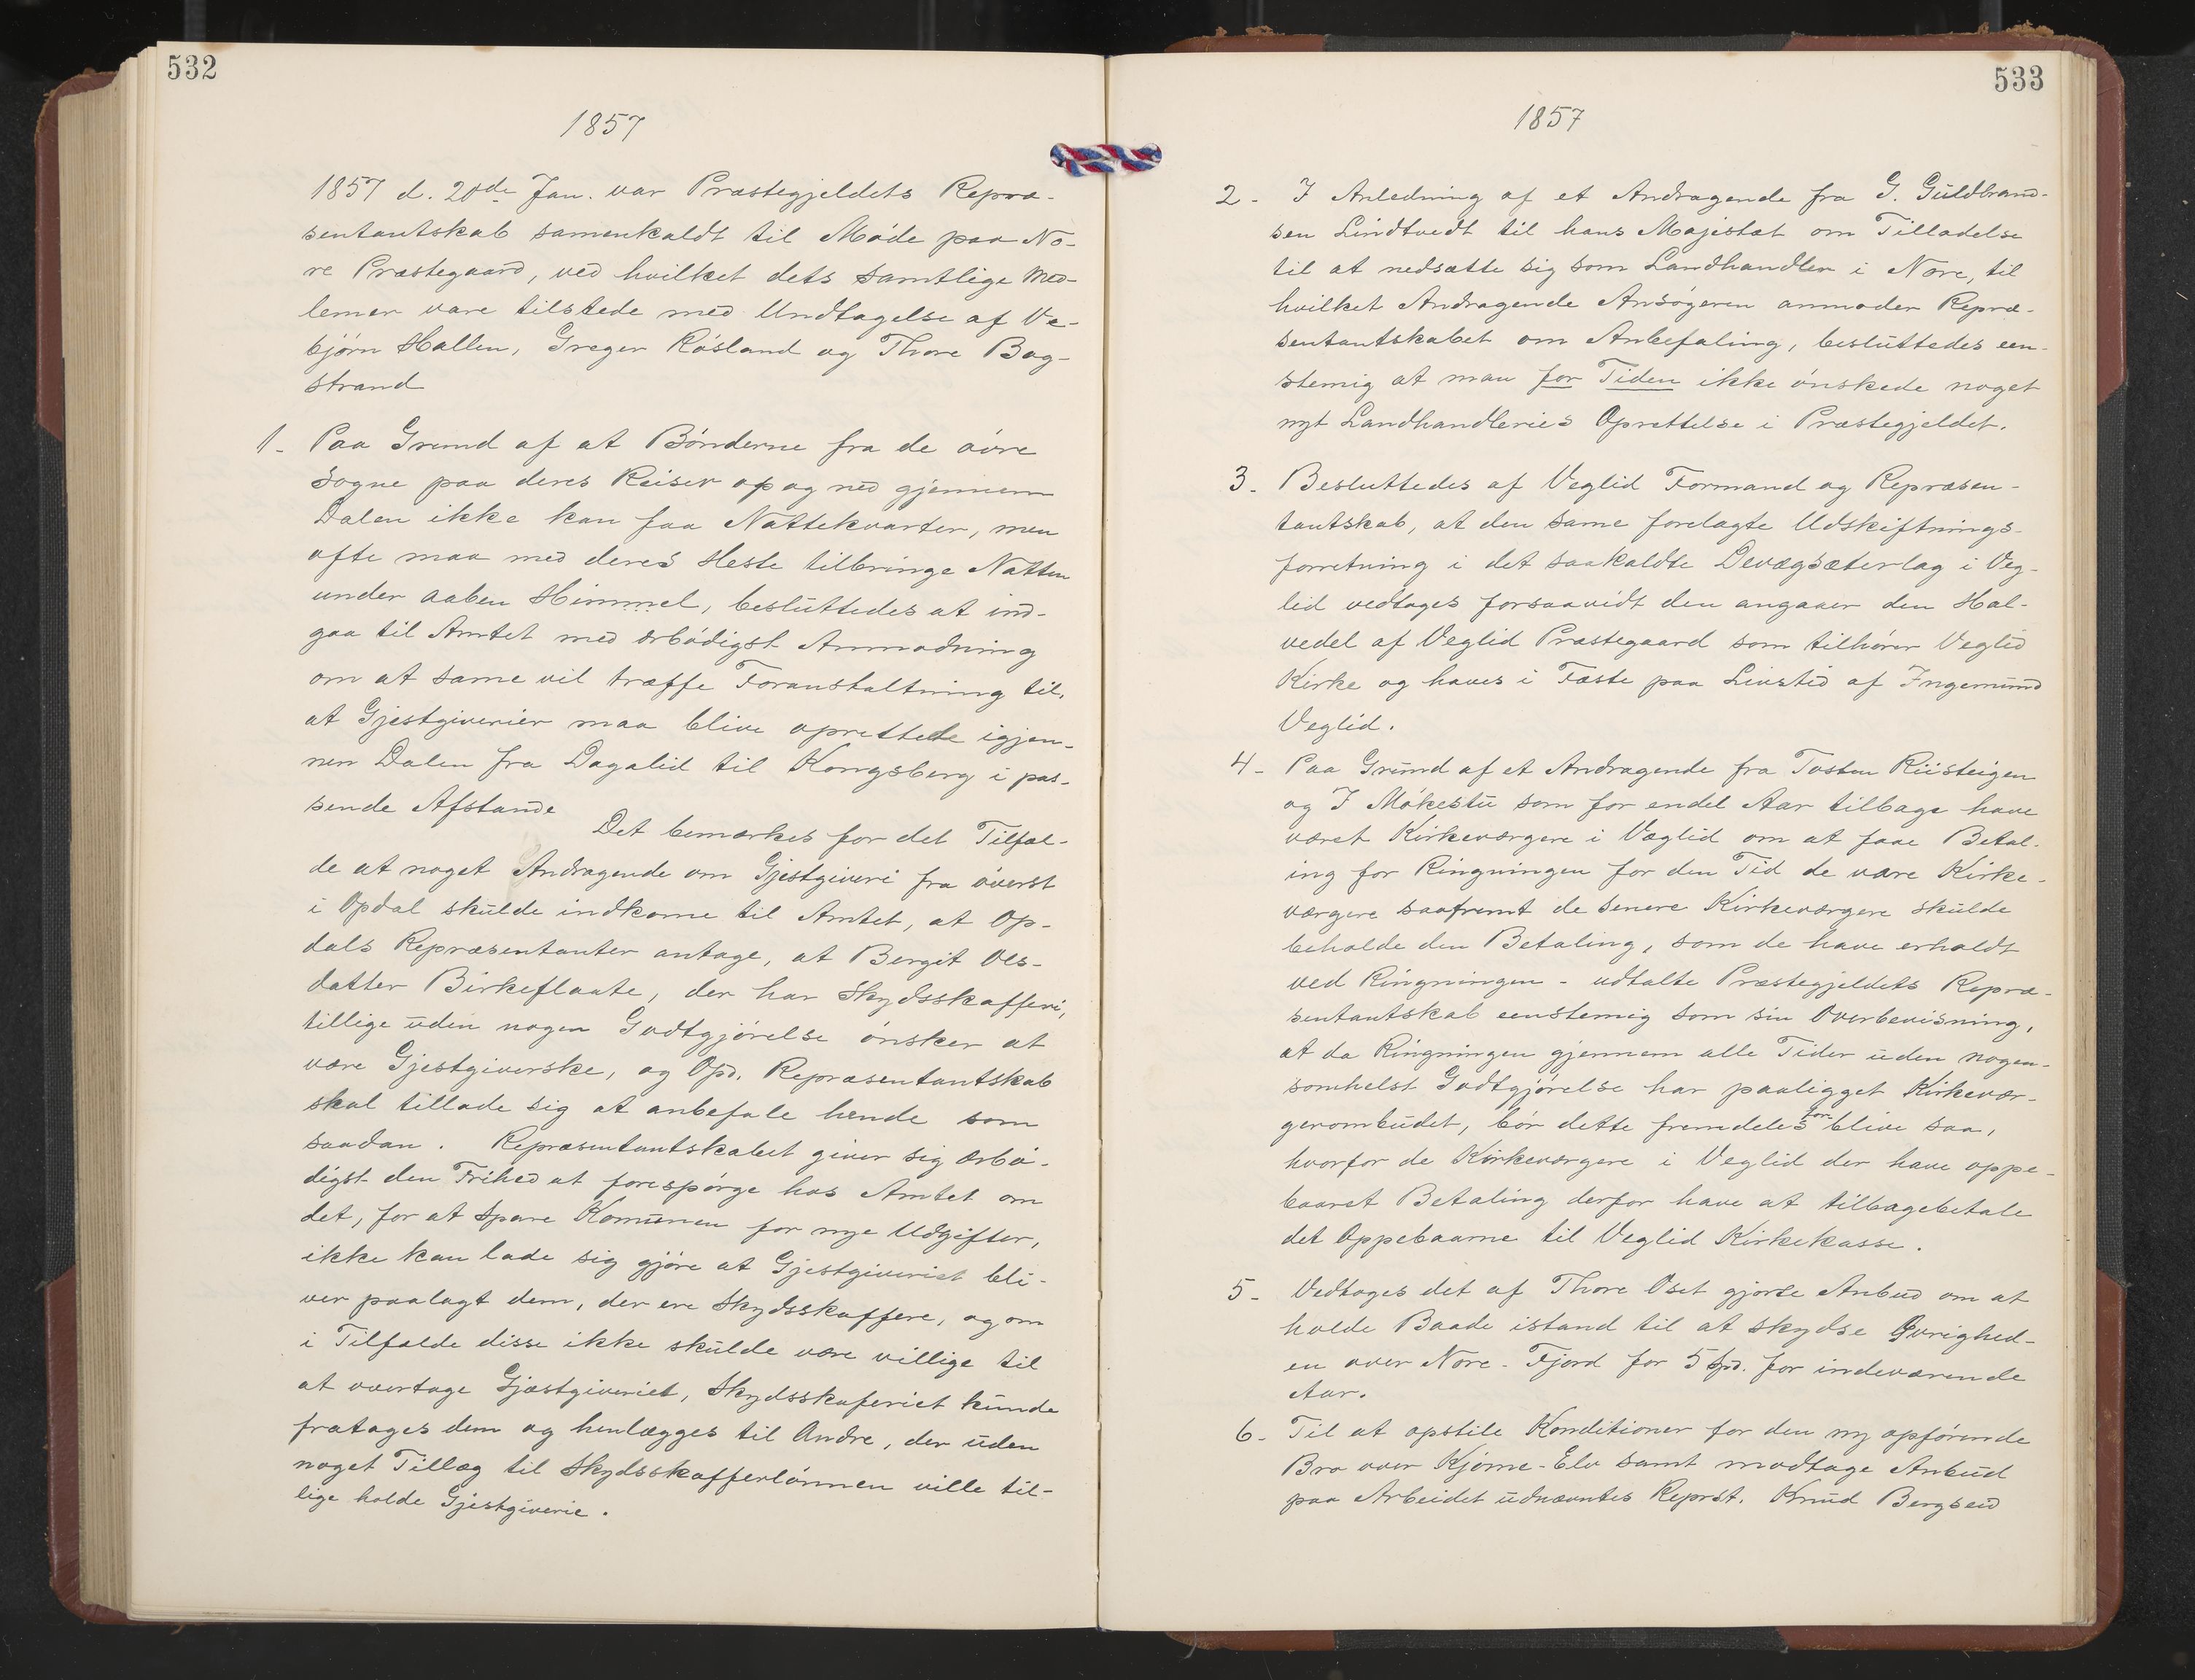 532
1857
1857 d. 20de Jan. var Præstegjeldets Repræ-
sentantskab samenkaldt til Møde paa No-
re Præstegaard, ved hvilket dets samtlige Med-
lemer vare tilstede med Undtagelse af Ve-
bjørn Hallen, Greger Røsland og Thore Bog-
strand
1- Paa Grund af at Bønderne fra de øvre
Sogne paa deres Reiser op og ned gjennem
Dalen ikke kan faa Nattekvarter, men
ofte maa med deres Heste tilbringe Natten
under aaben Himmel, besluttedes at ind-
gaa til Amtet med ærbødigst Anmodning
om at same vil træffe Foranstaltning til,
at Gjestgiverier maa blive oprettede igjen-
nen Dalen fra Dagalid til Kongsberg i pas-
sende Afstande
Det bemærkes for det Tilfæl-
de at noget Andragende om Gjestgiveri fra øverst
i Opdal skulde indkome til Amtet, at Op-
dals Repræsentanter antage, at Bergit Ols-
datter Birkeflaate, der har Skydsskafferi,
tillige uden nogen Godtgjørelse ønsker at
være Gjestgiverske, og Opd. Repræsentantskab
skal tillade sig at anbefale hende som
saadan. Repræsentantskabet giver sig ærbø-
digst den Frihed at forespørge hos Amtet om
det, for at spare Komunen for nye Udgifter,
ikke kan lade sig gjøre at Gjestgiveriet bli-
ver paalagt dem, der ere Skydsskaffere, og om
i Tilfælde disse ikke skulde være villige til
at overtage Gjæstgiveriet, Skydsskaferiet kunde
fratages dem og henlægges til Andre, der uden
noget Tillæg til Skydsskafferlønnen ville til-
lige holde Gjestgiverie.
533
1857
2- I Anledning af et Andragende fra G. Guldbrand-
sen Lindtvedt til hans Majestæt om Tilladelse
til at nedsætte sig som Landhandler i Nore, til
hvilket Andragende Ansøgeren anmoder Repræ-
sentantskabet om Anbefaling, besluttedes een-
stemig at man for Tiden ikke ønskede noget
nyt Landhandleries Oprettelse i Præstegjeldet.
3- Besluttedes af Veglid Formand og Repræsen-
tantskab, at den same forelagte Udskiftnings-
forretning i det saakaldte Devægsæterlag i Veg-
lid vedtages forsaavidt den angaaer den Hal-
vedel af Veglid Præstegaard som tilhører Veglid
Kirke og haves i Fæste paa Livstid af Ingemund
Veglid.
4- Paa Grund af et Andragende fra Tosten Riisteigen
og I Møkestu som for endel Aar tilbage have
været Kirkeværgere i Væglid om at faae Betal-
ing for Ringningen for den Tid de vare Kirke-
værgere saafremt de senere Kirkeværgere skulde
beholde den Betaling, som de have erholdt
ved Ringningen - udtalte Præstegjeldets Repræ-
sentantskab eenstemig som sin Overbevisning,
at da Ringningen gjennem alle Tider uden nogen-
somhelst Godtgjørelse har paaligget Kirkevær-
gerombudet, bør dette fremdeles for- blive saa,
hvorfor de Kirkeværgere i Veglid der have oppe-
baaret Betaling derfor have at tilbagebetale
det Oppebaarne til Veglid Kirkekasse.
5- Vedtages det af Thore Oset gjorte Anbud om at
holde Baade istand til at skydse Øvrighed-
en over Nore-Fjord for 5 Spd. for indeværende
Aar.
6- Til at opstile Konditioner for den ny opførende
Bro over Kjøme-Elv samt modtage Anbud
paa Arbeidet udnævntes Reprst. Knud Bergseid